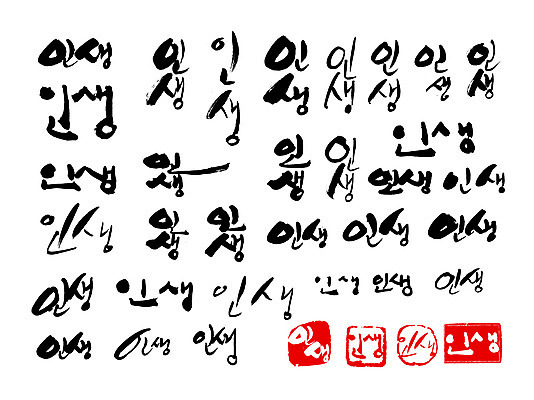 인생 인생 인생 인생 인생 인생 인생 인생
인생
인생
인생 인생 인생 인생 인생 인생
인생 인생 인생 인생 인생 인생
인생 인생 인생 인생 인생 인생
인생 인생 인생 인생 인생 인생 인생